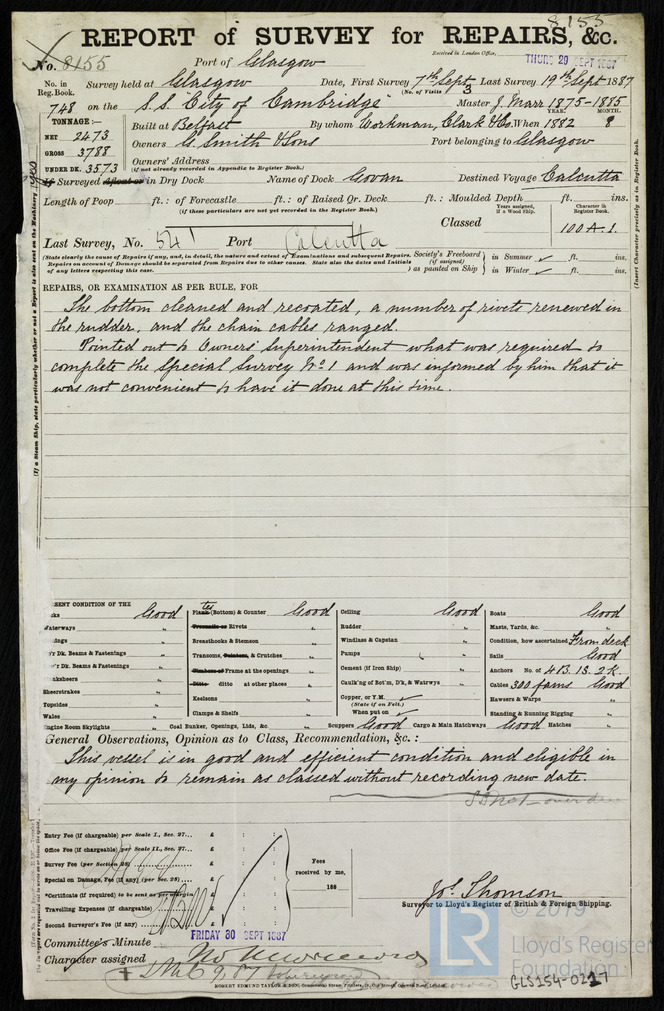 8155
REPORT of SURVEY for REPAIRS, &c.
Received in London Office,
THURS 29 SEPT 1887
No. 8155
Port of Glasgow
No. in Reg. Book. 748
Survey held at Glasgow Date, First Survey 7th Sept Last Survey 19th Sept 1887
(No. of Visits 3
on the S.S. City of Cambridge Master J. Marr 1875-1885
YEAR. MONTH.
TONNAGE:—
NET 2473
GROSS 3788
UNDER DK. 3573
Built at Belfast By whom Workman, Clark & Co. When 1882 8
Owners G. Smith & Sons Port belonging to Glasgow
Owners' Address
(if not already recorded in Appendix to Register Book.)
If Surveyed Afloat or in Dry Dock Name of Dock Govan Destined Voyage Calcutta
Length of Poop ft. : of Forecastle ft. : of Raised Qr. Deck ft. : Moulded Depth ft. ins.
(if these particulars are not yet recorded in the Register Book.)
Years assigned, if a Wood Ship.
Character in Register Book.
Classed 100 A 1.
Last Survey, No. 541 Port Calcutta
(State clearly the cause of Repairs if any, and, in detail, the nature and extent of Examinations and subsequent Repairs.
Repairs on account of Damage should be separated from Repairs due to other causes. State also the dates and Initials
of any letters respecting this case.
Society's Freeboard (if assigned) as painted on Ship
in Summer ✓ ft. ins.
in Winter ✓ ft. ins.
REPAIRS, OR EXAMINATION AS PER RULE, FOR
The bottom cleaned and recoated, a number of rivets renewed in
the rudder, and the chain cables ranged.
Pointed out to Owners' Superintendent what was required to
complete the Special Survey No. 1 and was informed by him that it
was not convenient to have it done at this time.
(If a Steam Ship, state particularly whether or not a Report is also sent on the Machinery
(Insert Character precisely as in Register Book.
SENT CONDITION OF THE
ks Good
Waterways "
ings "
r Dk. Beams & Fastenings "
'r Dk. Beams & Fastenings "
nksheers "
Sheerstrakes "
Topsides "
Wales "
Engine Room Skylights "
Plank (Bottom) & Counter Good
Treenails or Rivets "
Breasthooks & Stemson "
Transoms, Pointers, & Crutches "
Timbers or Frame at the openings "
Ditto ditto at other places "
Keelsons "
Clamps & Shelfs "
Coal Bunker, Openings, Lids, &c. "
Ceiling Good
Rudder "
Windlass & Capstan "
Pumps "
Cement (if Iron Ship) "
Caulk'ng of Bot'm, D'k, & Watrwys "
Copper, or Y.M. ✓
(State if on Felt.)
When put on ✓
Scuppers Good Cargo & Main Hatchways Good Hatches "
Boats Good
Masts, Yards, &c. "
Condition, how ascertained From deck
Sails Good
Anchors No. of 4 B. 1 S. 2 K.
Cables 300 fams Good
Hawsers & Warps "
Standing & Running Rigging "
General Observations, Opinion as to Class, Recommendation, &c. :
This vessel is in good and efficient condition and eligible in
my opinion to remain as classed without recording new date.
Entry Fee (if chargeable) per Scale I., Sec. 27... £ : :
Office Fee (if chargeable) per Scale II., Sec. 27... £ : :
Survey Fee (per Section 28) £ : :
Special on Damage, Fee (if any) (per Sec. 28) £ : :
*Certificate (if required) to be sent as per margin £ : :
Travelling Expenses (if chargeable) £ : :
Second Surveyor's Fee (if any) £ : :
Fees received by me,
188
Jos. Thomson
Surveyor to Lloyd's Register of British & Foreign Shipping.
Committee's Minute FRIDAY 30 SEPT 1887
Character assigned
ROBERT EDMUND TAYLOR & SON,
© 2019
LR
Lloyd's Register
Foundation
GLS154-0217